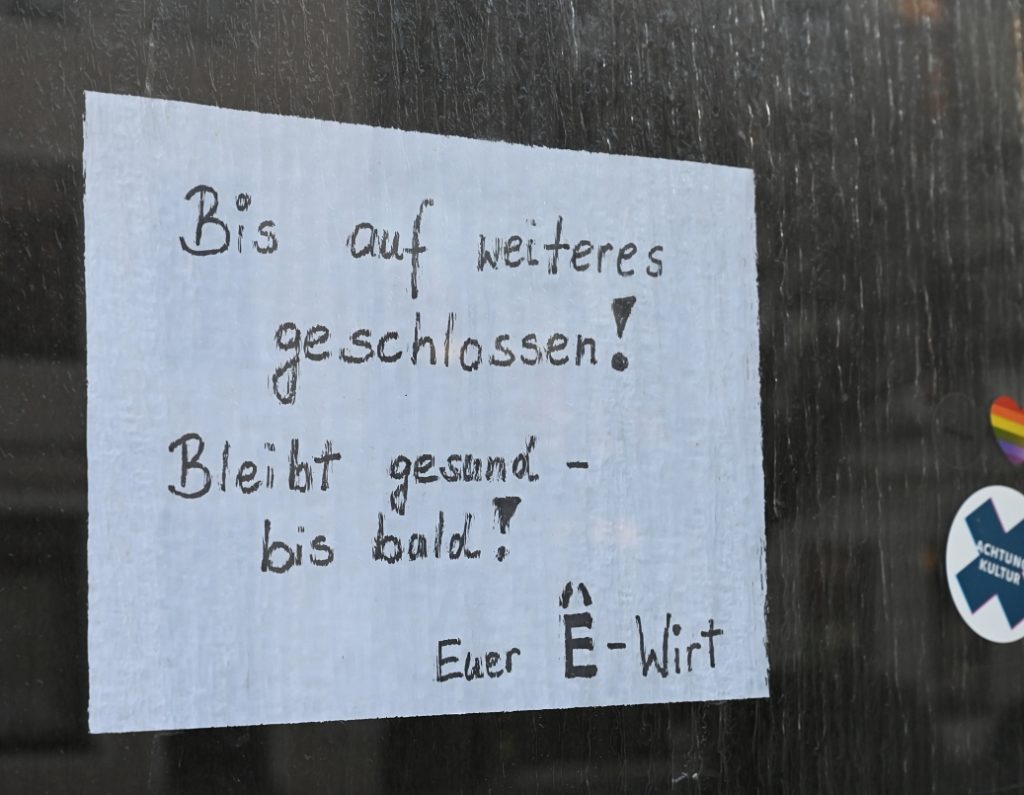 Bis auf weiteres
geschlossen!
Bleibt gesund -
bis bald!
Euer Ê-Wirt
ACHTUNG
KULTUR